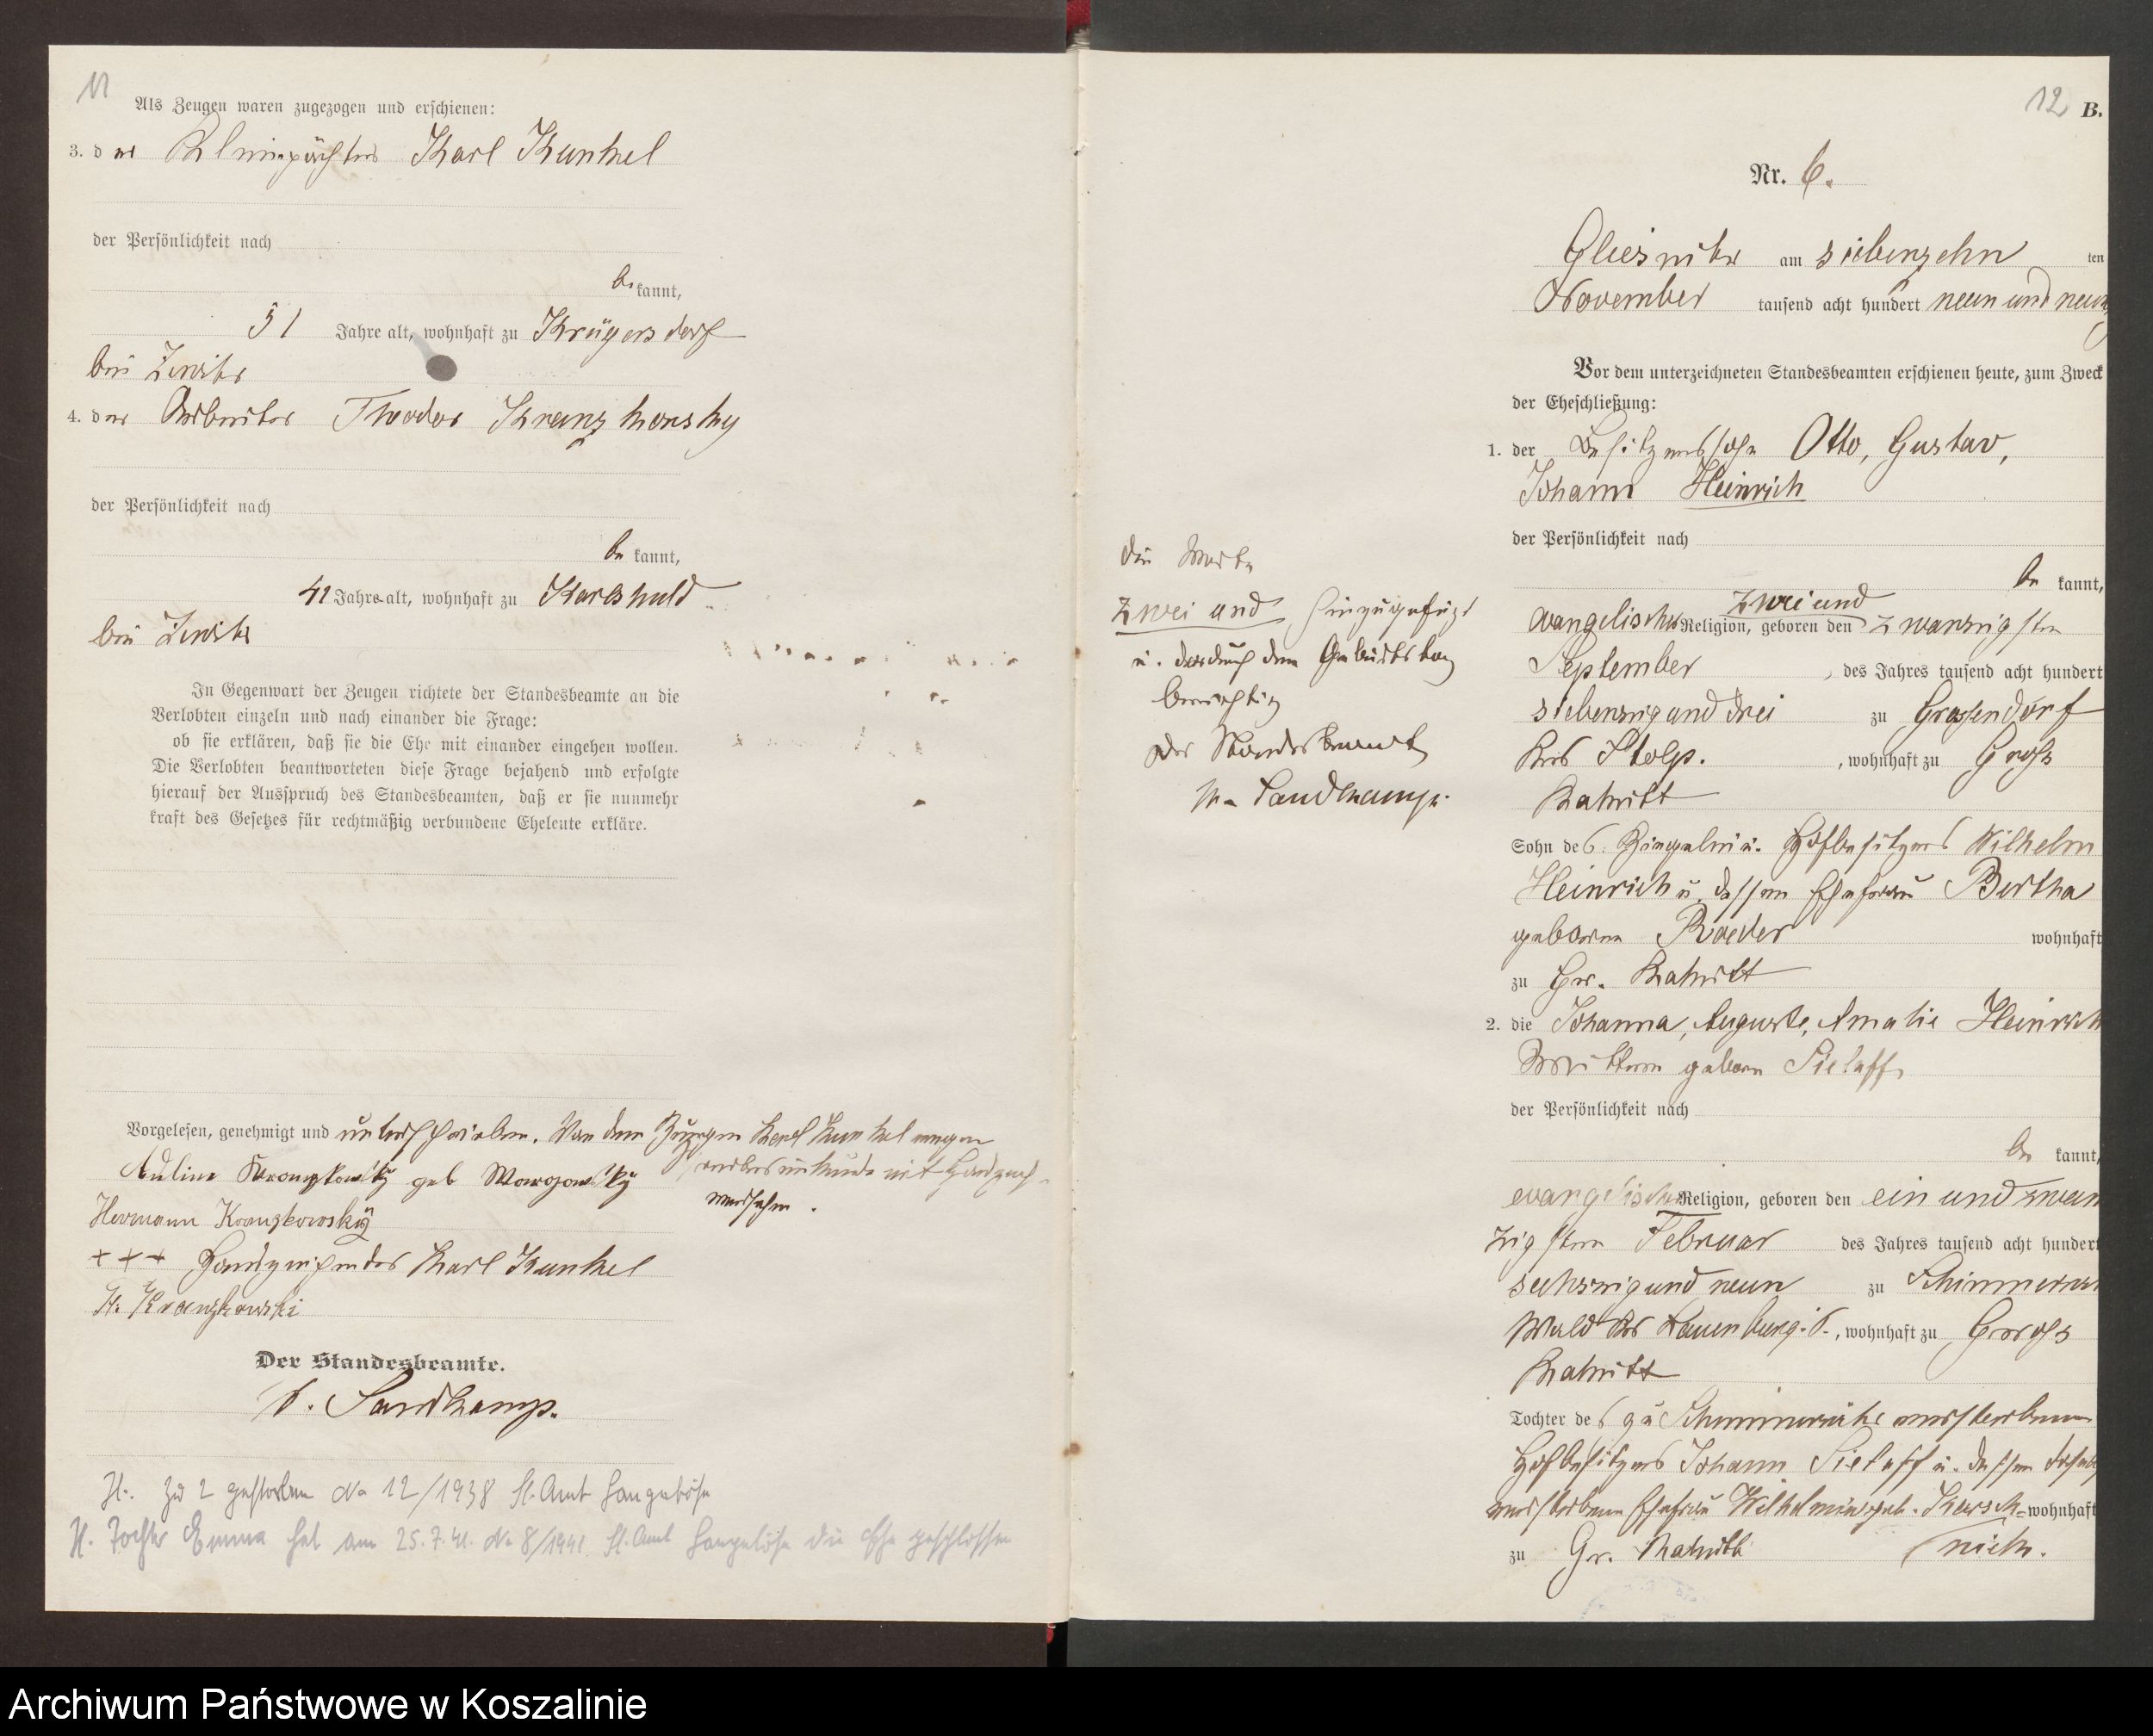 11
Als Zeugen waren zugezogen und erschienen:
3. der Kleinpächter Karl Kunkel
der Persönlichkeit nach
be kannt,
51 Jahre alt, wohnhaft zu Krügersdorf
bei Zewitz
4. der Arbeiter Theodor Kranzkowsky
der Persönlichkeit nach
be kannt,
41 Jahre alt, wohnhaft zu Karlshuld
bei Zewitz
In Gegenwart der Zeugen richtete der Standesbeamte an die
Verlobten einzeln und nach einander die Frage:
ob sie erklären, daß sie die Ehe mit einander eingehen wollen.
Die Verlobten beantworteten diese Frage bejahend und erfolgte
hierauf der Ausspruch des Standesbeamten, daß er sie nunmehr
kraft des Gesetzes für rechtmäßig verbundene Eheleute erkläre.
Vorgelesen, genehmigt und unterschrieben. Von dem Zeugen Karl Kunkel wegen
Auline Kranzkowsky geb Wargowsky
Schreibensunkunde mit Handzeich-
versehen.
Hermann Kranzkowsky
+++ Handzeichen des Karl Kunkel
Th. Kranzkowski
Der Standesbeamte.
v. Sandkamp.
H. Zu 2 gestorben No 12/1938 St. Amt Langeböse
H. Tochter Emma hat am 25.7.41. No 8/1941 St. Amt Langeböse die Ehe geschlossen
12 B.
Nr. 6.
Gliesnitz am siebenzehn ten
November tausend acht hundert neun und neunz
Vor dem unterzeichneten Standesbeamten erschienen heute, zum Zweck
der Eheschließung:
1. der Besitzerssohn Otto, Gustav,
Johann Heinrich
der Persönlichkeit nach
be kannt,
zwei und
evangelischer Religion, geboren den zwanzigsten
September, des Jahres tausend acht hundert
siebenzig und drei zu Grossendorf
Kreis Stolp., wohnhaft zu Gross
Rakitt
Sohn des Hofbesitzers Wilhelm
Heinrich u. dessen Ehefrau Bertha
geborene Roeder wohnhaft
zu Gr. Rakitt
2. die Johanna, Auguste, Amalie Heinrich
Wittwe geborne Sielaff
der Persönlichkeit nach
be kannt,
evangelischer Religion, geboren den ein und zwan
zigsten Februar des Jahres tausend acht hundert
sechszig und neun zu Schimmeritz
Wald Krs Lauenburg, wohnhaft zu Gross
Rakitt
Tochter des zu Schimmeritz verstorbenen
Hofbesitzers Johann Sielaff u. dessen daselbst
verstorbene Ehefrau Wilhelmine geb. Karsch= wohnhaft
zu Gr. Rakitt nick.
Die Worte
zwei und hinzugefügt
u. dadurch den Geburtstag
berichtig
Der Standesbeamte
v. Sandkamp.
Archiwum Państwowe w Koszalinie